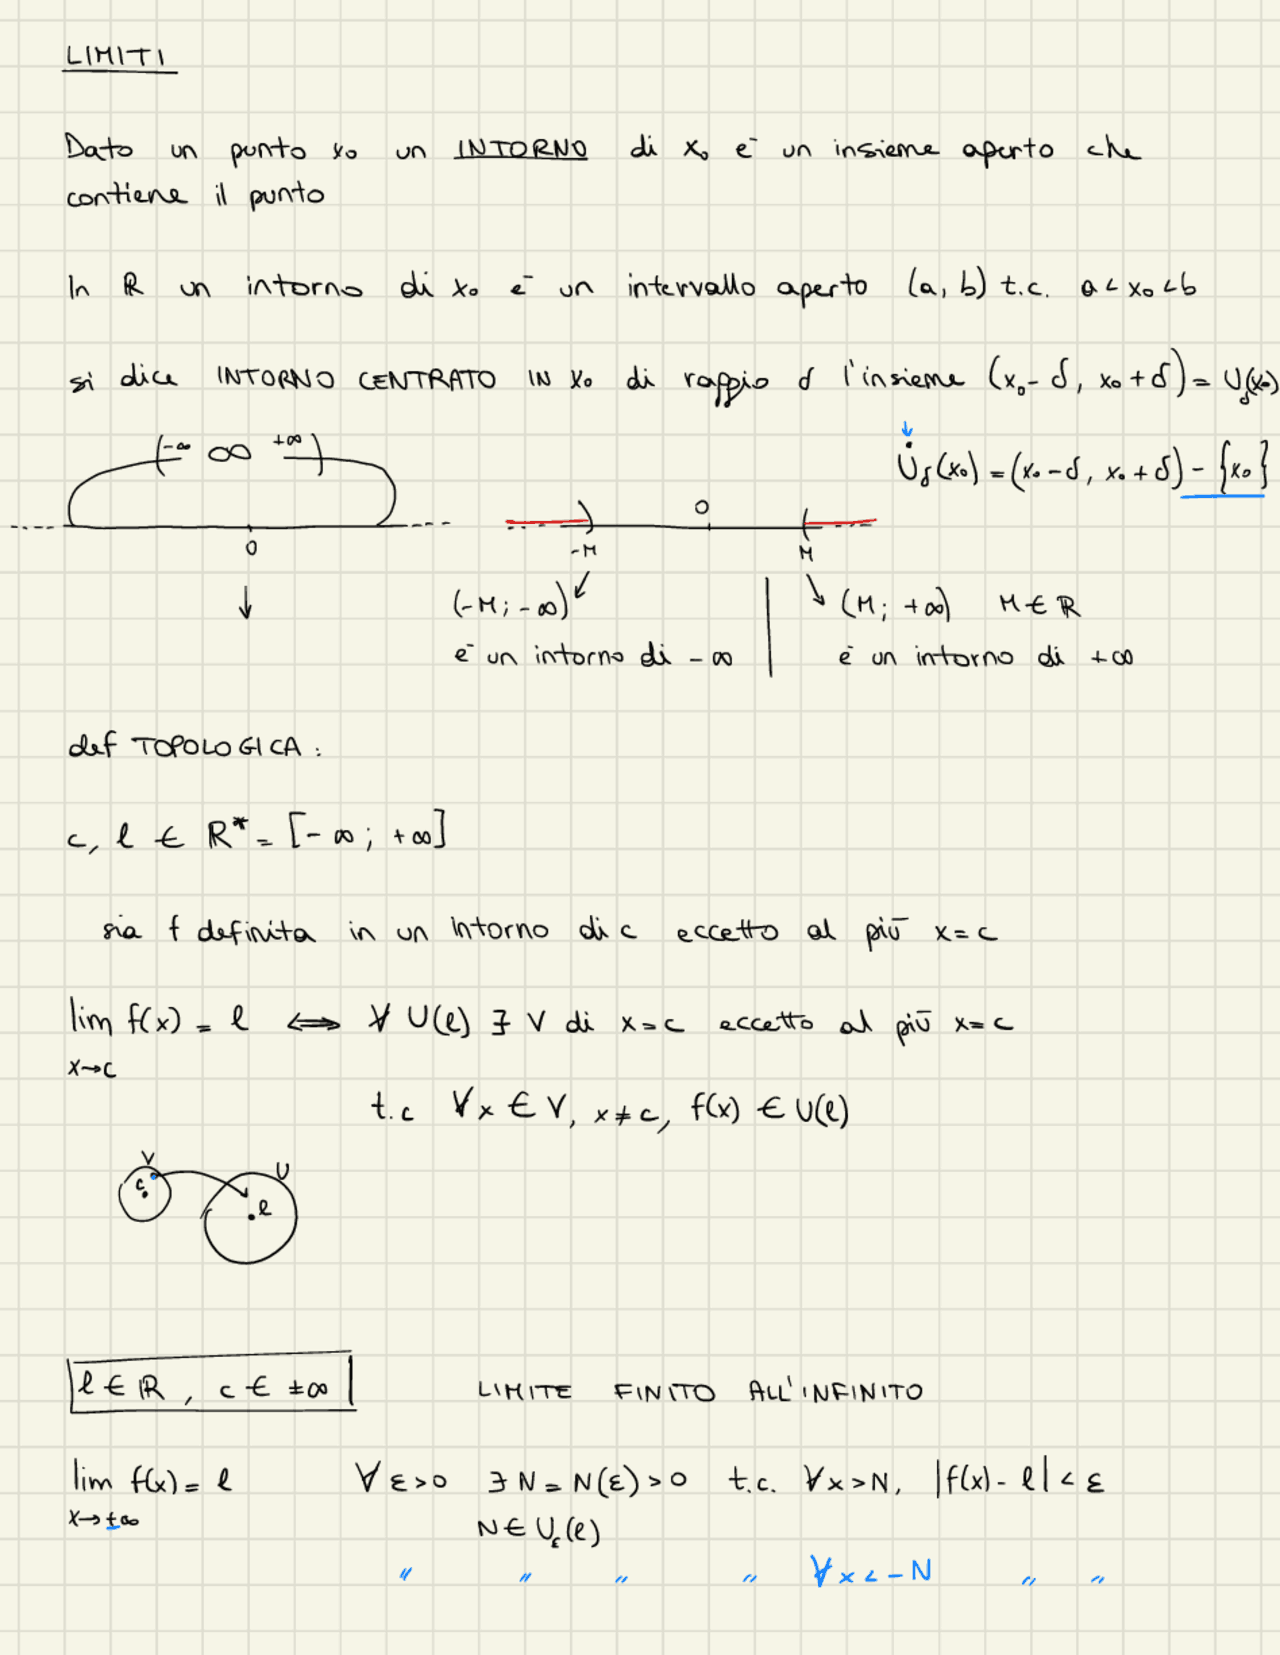 LIMITI
Dato un punto x₀ un INTORNO di x₀ è un insieme aperto che
contiene il punto
In ℝ un intorno di x₀ è un intervallo aperto (a, b) t.c. a < x₀ < b
si dice INTORNO CENTRATO IN x₀ di raggio δ l'insieme (x₀ - δ, x₀ + δ) = U_δ(x₀)
(-∞ ∞ +∞)
↓
U̇_δ(x₀) = (x₀ - δ, x₀ + δ) - {x₀}
0
-M 0 M
(-M; -∞)
è un intorno di -∞
(M; +∞) M ∈ ℝ
è un intorno di +∞
def TOPOLOGICA:
c, l ∈ ℝ* = [-∞; +∞]
sia f definita in un intorno di c eccetto al più x = c
lim f(x) = l ⟺ ∀ U(l) ∃ V di x = c eccetto al più x = c
x→c
t.c ∀x ∈ V, x ≠ c, f(x) ∈ U(l)
V c U l
l ∈ ℝ, c ∈ ±∞ LIMITE FINITO ALL'INFINITO
lim f(x) = l ∀ε>0 ∃ N = N(ε) > 0 t.c. ∀x > N, |f(x) - l| < ε
x→±∞
N ∈ U_ε(l)
" " " " ∀x < -N " "